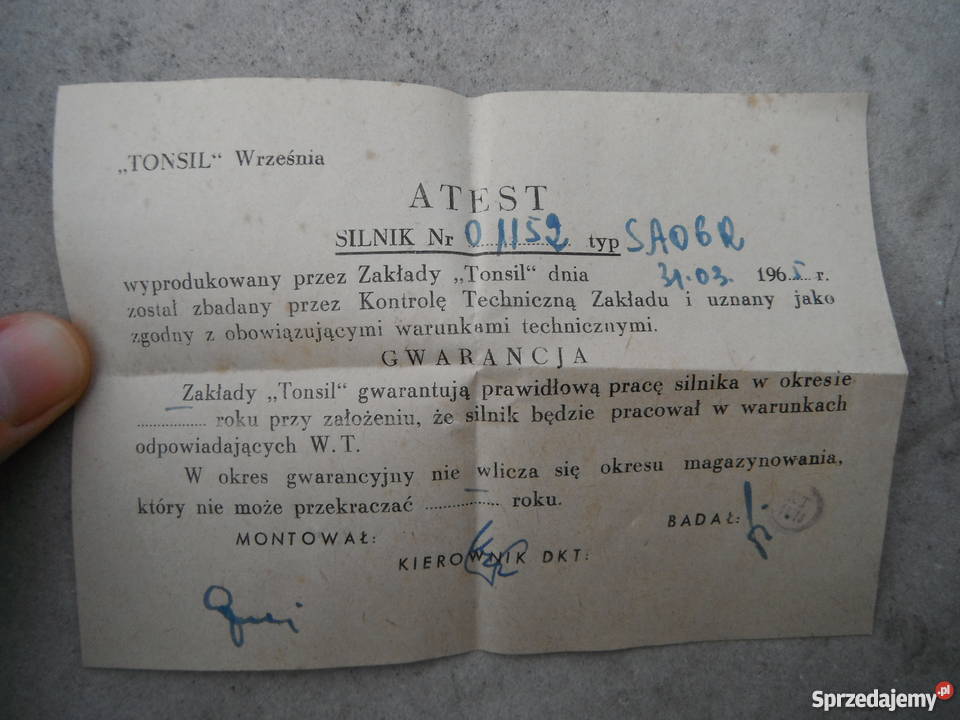 „TONSIL“ Września
ATEST
SILNIK Nr 01152 typ SA06R
wyprodukowany przez Zakłady „Tonsil“ dnia 31.03. 196 r.
został zbadany przez Kontrolę Techniczną Zakładu i uznany jako
zgodny z obowiązującymi warunkami technicznymi.
GWARANCJA
Zakłady „Tonsil“ gwarantują prawidłową pracę silnika w okresie
— roku przy założeniu, że silnik będzie pracował w warunkach
odpowiadających W. T.
W okres gwarancyjny nie wlicza się okresu magazynowania,
który nie może przekraczać — roku.
MONTOWAŁ:
KIEROWNIK DKT:
BADAŁ:
Sprzedajemy.pl